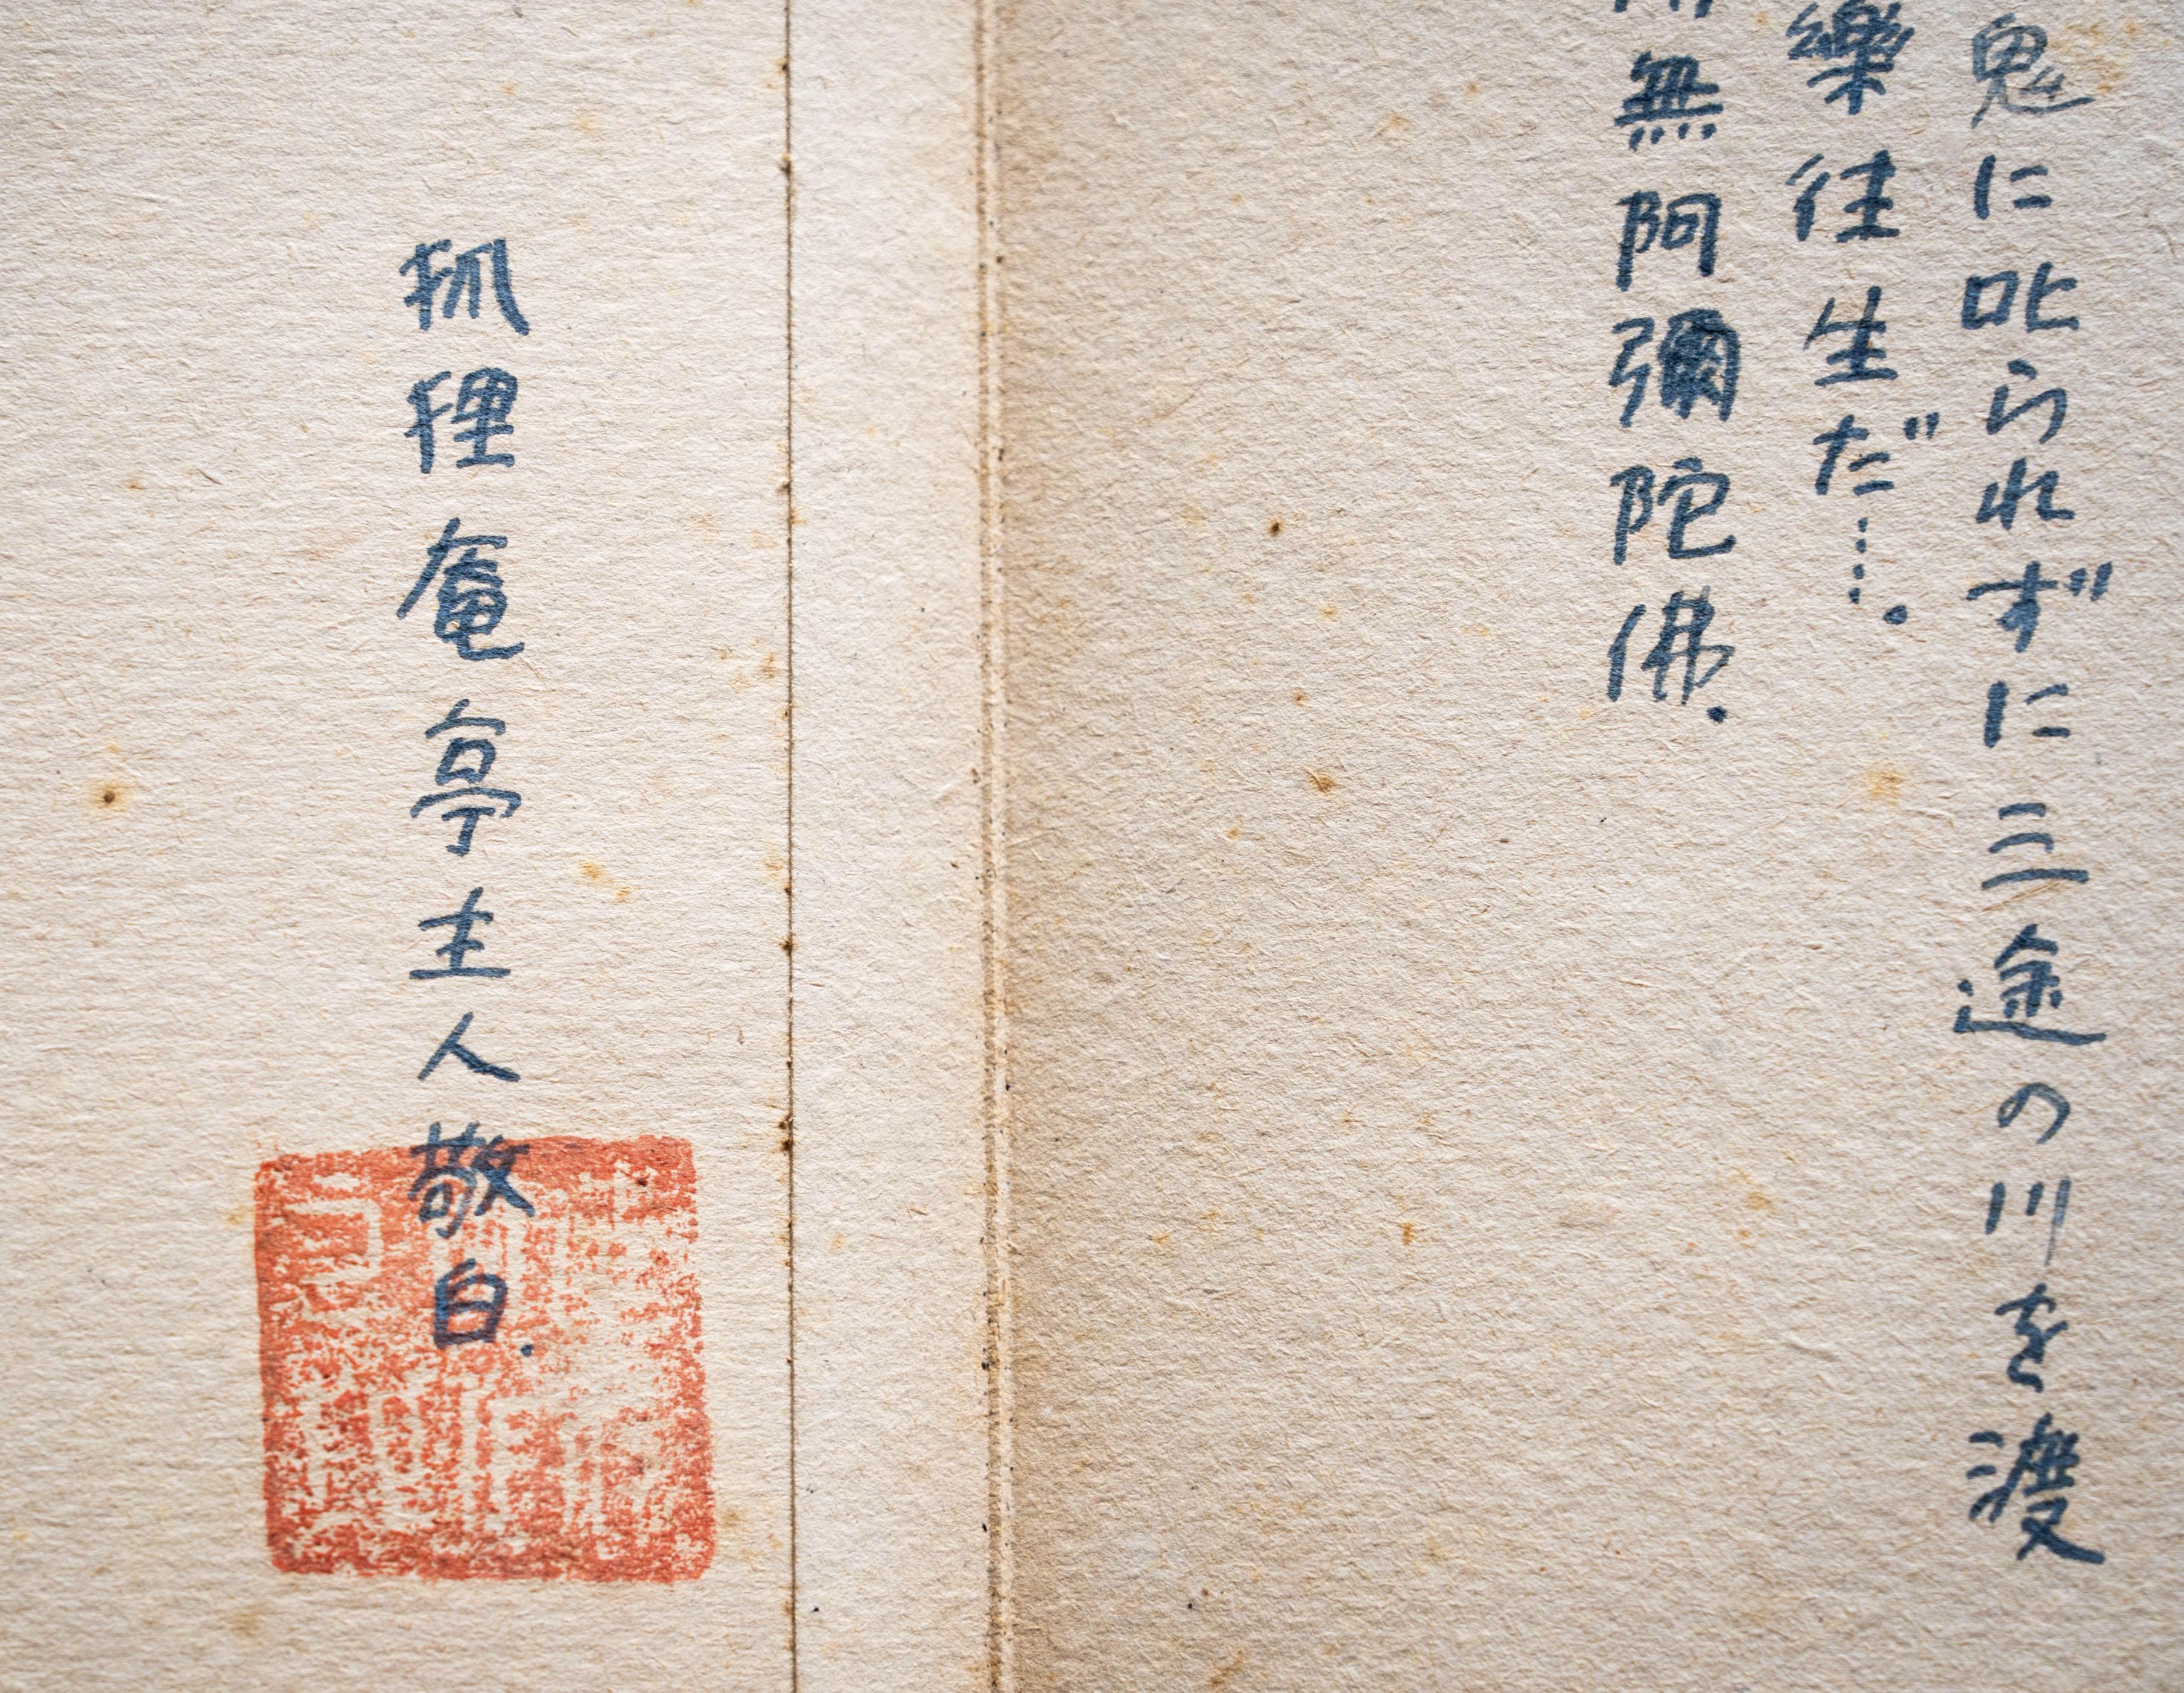 鬼に叱られずに三途の川を渡
樂往生だ……。
無阿彌陀佛.
狐狸庵亭主人敬白.